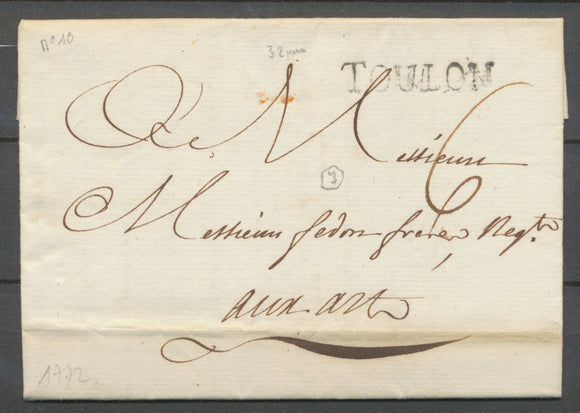 n° 10
32 mm
TOULON
A Messieurs
6
7
Messieurs fedon freres Negts
aux arcs
1772